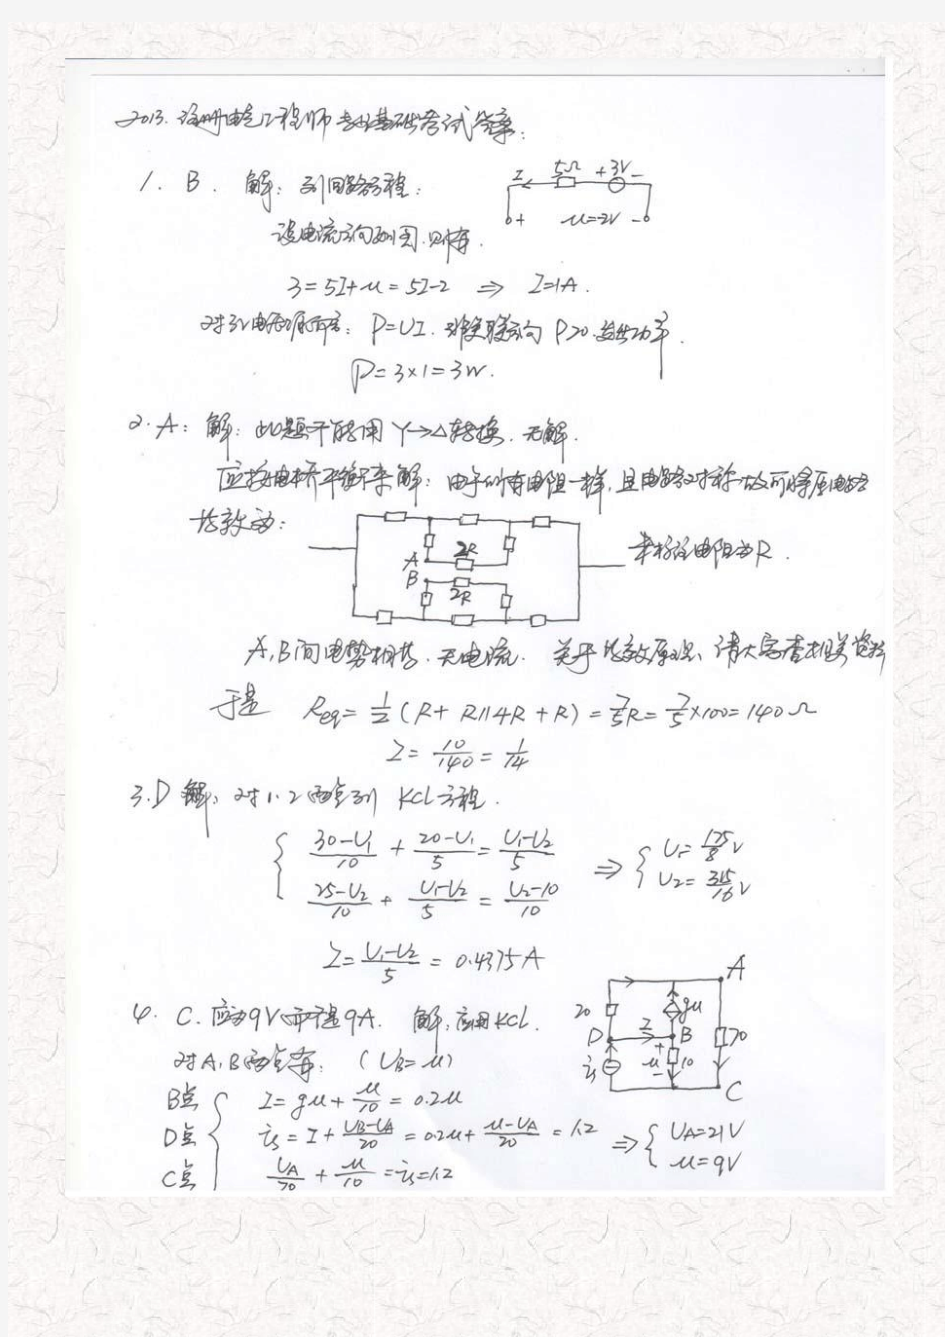 2013.注册电气工程师专业基础考试答案:
1. B. 解: 列回路方程:
I 5Ω +3V-
+ u=2V -
设电流方向如图.则有.
3=5I+u=5I-2 ⇒ I=1A.
对3V电压源而言: P=UI. 非关联方向 P>0.发出功率.
P=3×1=3W.
2.A: 解: 此题不能用Y→△转换.无解.
应按电桥平衡来解: 由于所有电阻一样,且电路对称故可将原电路
等效为:
A 2R
B 2R
未标注电阻为R.
A,B间电势相等.无电流. 关于等效原理,请大家查相关资料
于是 Req=1/2(R+R//4R+R)=7/5R=7/5×100=140Ω
I=10/140=1/14
3.D 解: 对1.2两点列 KCL方程.
(30-U1)/10+(20-U1)/5=(U1-U2)/5 ⇒ U1=175/8V
(25-U2)/10+(U1-U2)/5=(U2-10)/10 U2=315/16V
I=(U1-U2)/5=0.4375A
4. C.应为9V而不是9A. 解:应用KCL.
A
20 gu
D I B 70
is + u - 10
C
对A,B两点有: (UB=u)
B点 I=gu+u/10=0.2u
D点 is=I+(UB-UA)/20=0.2u+(u-UA)/20=1.2 ⇒ UA=21V
C点 UA/70+u/10=is=1.2 u=9V